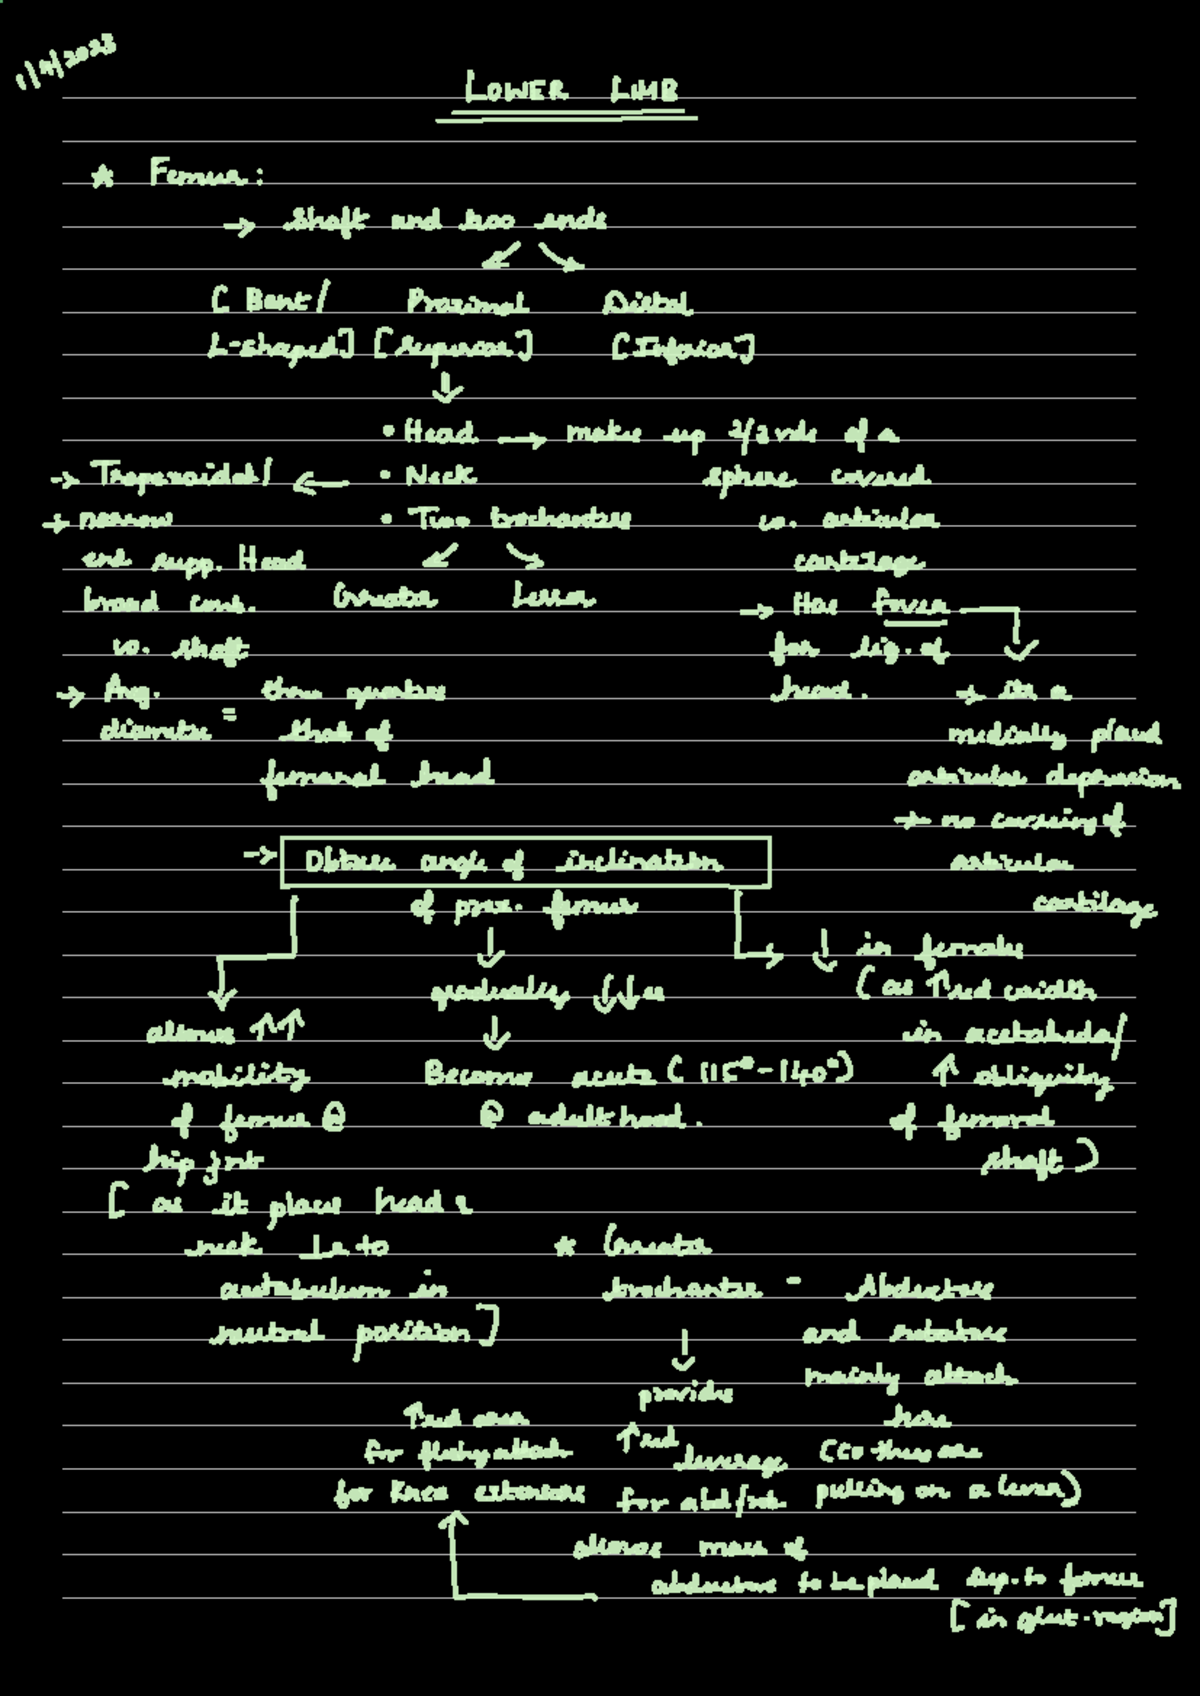 1/4/2023
LOWER LIMB
★ Femur:
→ Shaft and two ends
[Bent/
L-shaped]
Proximal
[Superior]
Distal
[Inferior]
• Head → makes up 2/3rds of a
sphere covered
w. articular
cartilage
→ Has fovea
for lig. of
head.
→ its a
medially placed
articular depression
→ no covering of
articular
cartilage
• Neck
→ Trapezoidal/
→ narrow
end supp. Head
broad cont.
w. shaft
→ Avg.
diameter = three quarters
that of
femoral head
• Two trochanters
Greater Lesser
→ Obtuse angle of inclination
of prox. femur
allows ↑↑
mobility
of femur @
hip jnt
[as it places head &
neck ⊥r to
acetabulum in
neutral position]
gradually ↓↓es
Becomes acute (115°-140°)
@ adulthood.
↓ in female
(as ↑sed width
in acetabula/
↑ obliquity
of femoral
shaft)
★ Greater
trochanter - Abductors
and rotators
mainly attach
here
(so they are
pulling on a lever)
provides
↑sed leverage
for abd/rot.
allows mass of
abductors to be placed sup. to femur
[in glut. region]
↑sed area
for fleshy attach
for Knee extensors